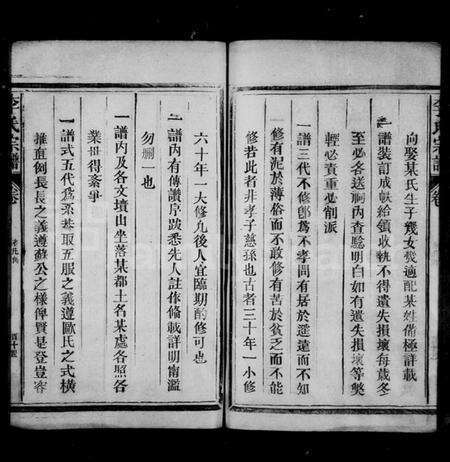 向娶某氏生子幾女幾適配某姓備極詳載
一譜裝訂成帙給領收執不得遺失損壞每歲冬
至必各送祠內查騐明白如有遺失損壞等獘
輕必責重必削派
一譜三代不修卽為不孝間有居於遥遠而不知
修有泥於薄俗而不敢修有苦於貧乏而不能
修者此者非孝子慈孫也古者三十年一小修
六十年一大修凡後人宜臨期酌修可也
一譜內有傳讚序跋悉先人註依條載詳明甯濫
勿刪一也
一譜內及各文墳山坐落某都土名某處各照各
業毋得紊爭
一譜式五代為系葢取五服之義遵歐氏之式橫
推直例長長之義遵蘇公之樣俾賢是登豈容
氏宗譜
卷